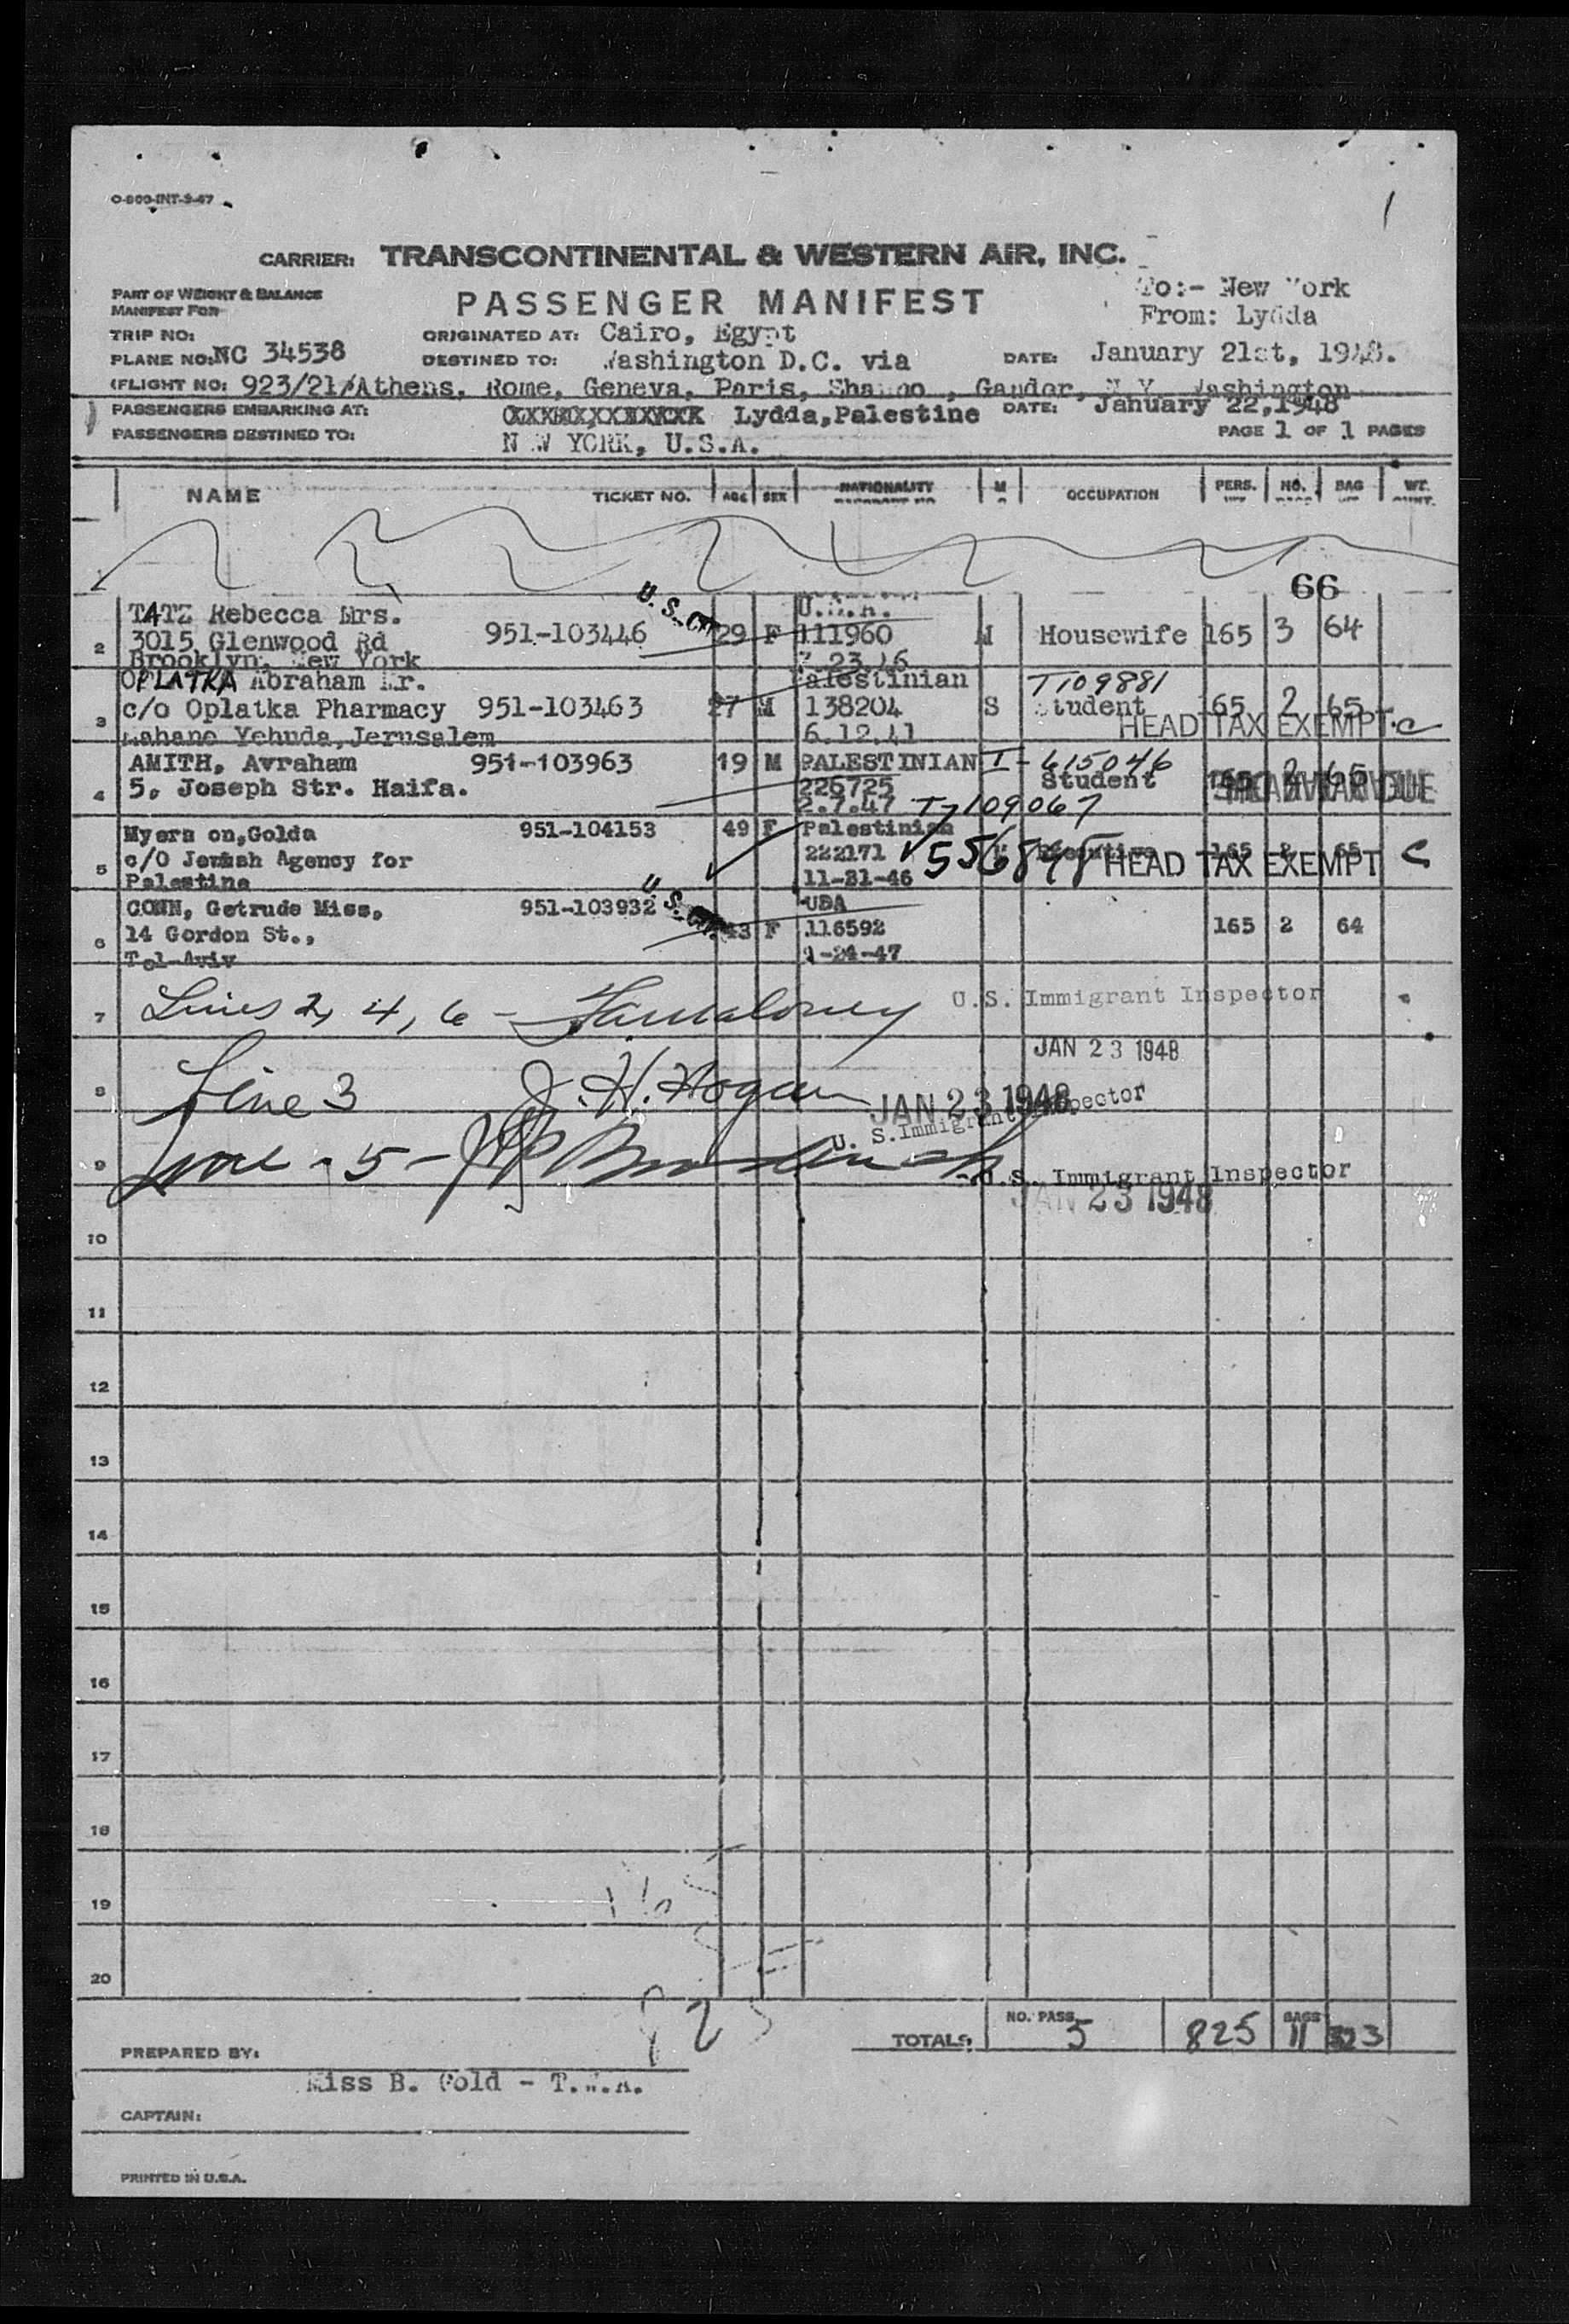 O-800-INT-9-47
1
CARRIER: TRANSCONTINENTAL & WESTERN AIR, INC.
PART OF WEIGHT & BALANCE
MANIFEST FOR
PASSENGER MANIFEST
To:- New York
From: Lydda
TRIP NO:
ORIGINATED AT: Cairo, Egypt
PLANE NO: NC 34538
DESTINED TO: Washington D.C. via
DATE: January 21st, 1948.
(FLIGHT NO: 923/21/Athens, Rome, Geneva, Paris, Shannon, Gander, N.Y. Washington
PASSENGERS EMBARKING AT: Lydda,Palestine DATE: January 22,1948
PASSENGERS DESTINED TO: N W YORK, U.S.A.
PAGE 1 OF 1 PAGES
NAME TICKET NO. AGE SEX NATIONALITY M OCCUPATION PERS. NO. BAG WT.
66
U. S. U.S.A.
TATZ Rebecca Mrs.
2 3015 Glenwood Rd 951-103446 29 F 111960 M Housewife 165 3 64
Brooklyn, New York 23.46
OPLATKA Abraham Mr. Palestinian T109881
3 c/o Oplatka Pharmacy 951-103463 27 M 138204 S Student 165 2 65
Mahane Yehuda,Jerusalem 6.12.41 HEAD TAX EXEMPT c
AMITH, Avraham 951-103963 19 M PALESTINIAN I-615046
4 5, Joseph Str. Haifa. 226725 Student 165 2 65
2.7.47 T-109067
Myers on,Golda 951-104153 49 F Palestinian
5 c/O Jewish Agency for 222171 556848 Executive 165 2 65
HEAD TAX EXEMPT C
Palestine 11-21-46
U. S.
CONN, Getrude Miss, 951-103932 USA
6 14 Gordon St., 43 F 116592 165 2 64
Tel-Aviv -24-47
7 Lines 2, 4, 6 - U.S. Immigrant Inspector
JAN 23 1948
8 Line 3 J. H. Hogan JAN 23 1948
U. S. Immigrant Inspector
9 Line - 5 -
U.S. Immigrant Inspector
JAN 23 1948
10
11
12
13
14
15
16
17
18
19
20
825
TOTALS: NO. PASS. 5 825 BAGS 11 323
PREPARED BY:
Miss B. Gold - T.W.A.
CAPTAIN:
PRINTED IN U.S.A.